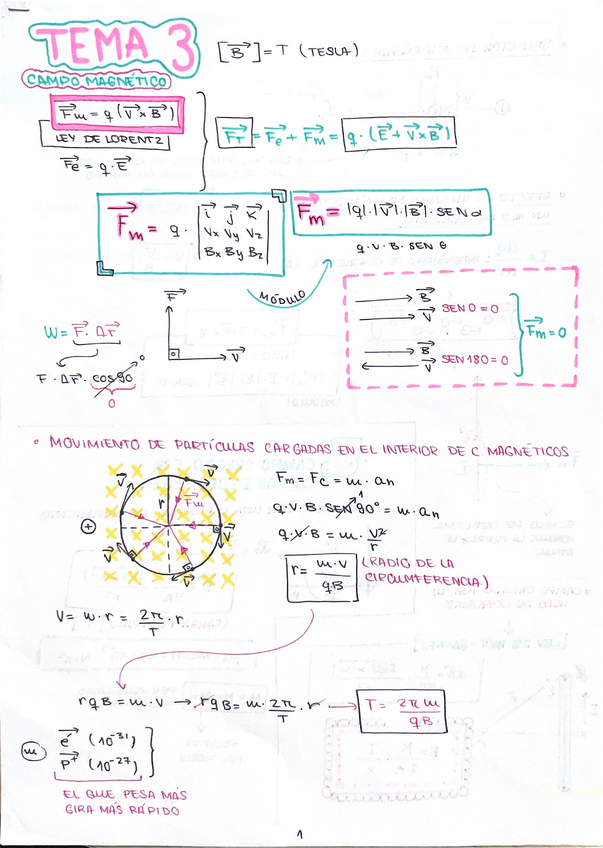 TEMA 3
[B⃗] = T (TESLA)
CAMPO MAGNÉTICO
F⃗m = q (V⃗ x B⃗)
LEY DE LORENTZ
F⃗e = q · E⃗
F⃗T = F⃗e + F⃗m = q · (E⃗ + V⃗ x B⃗)
F⃗m = q · | i⃗ j⃗ k⃗ |
| Vx Vy Vz |
| Bx By Bz |
F⃗m = |q| · |V⃗| · |B⃗| · SEN α
q · V · B · SEN θ
MÓDULO
B⃗
V⃗
SEN 0 = 0
B⃗
V⃗
SEN 180 = 0
F⃗m = 0
F⃗
V⃗
W = F⃗ · Δr⃗
F · Δr · cos 90 0
0
° MOVIMIENTO DE PARTÍCULAS CARGADAS EN EL INTERIOR DE C. MAGNÉTICOS
V⃗
V⃗
r
F⃗m
+
V⃗
V⃗
V⃗
Fm = Fc = m · an
q · V · B · SEN 90° 1 = m · an
q · V · B = m · V²/r
r = m · V / qB
(RADIO DE LA
CIRCUMFERENCIA)
V = w · r = 2π/T · r
r q B = m · V → r q B = m · 2π/T · r → T = 2π m / qB
m
e⃗ (10⁻³¹)
p⃗⁺ (10⁻²⁷)
EL QUE PESA MÁS
GIRA MÁS RÁPIDO
1